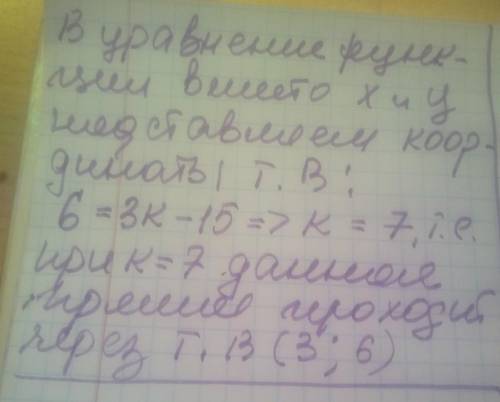 В уравнение функ-
ции вместо х и у
подставляем коор-
динаты т. В:
6 = 3к - 15 => к = 7, т.е.
при к = 7 данная
прямая проходит
через т. В (3; 6)